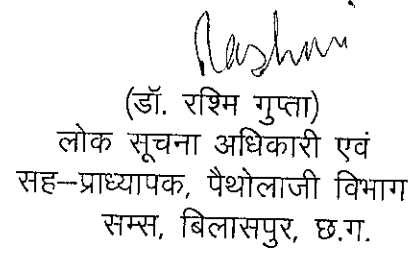 Rashmi
(डॉ. रश्मि गुप्ता)
लोक सूचना अधिकारी एवं
सह–प्राध्यापक, पैथोलाजी विभाग
सम्स, बिलासपुर, छ.ग.